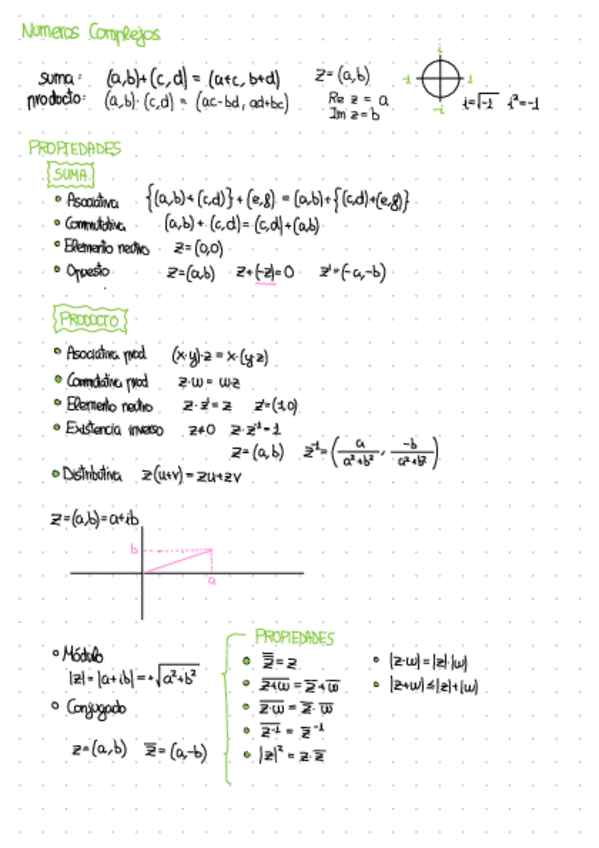 Numeros Complejos
suma: (a,b)+(c,d) = (a+c, b+d)
producto: (a,b)·(c,d) = (ac-bd, ad+bc)
z=(a,b)
Re z = a
Im z = b
i
-1 1
-i
i=√-1 i²=-1
PROPIEDADES
SUMA
• Asociativa {(a,b)+(c,d)}+(e,g) = (a,b)+{(c,d)+(e,g)}
• Conmutativa (a,b)+(c,d)=(c,d)+(a,b)
• Elemento neutro z=(0,0)
• Opuesto z=(a,b) z+(-z)=0 z'=(-a,-b)
PRODUCTO
• Asociativa prod (x·y)·z = x·(y·z)
• Conmutativa prod z·w = w·z
• Elemento neutro z·z'=z z'=(1,0)
• Existencia inverso z≠0 z·z⁻¹=1
z=(a,b) z⁻¹=(a/(a²+b²), -b/(a²+b²))
• Distributiva z(u+v)=zu+zv
z=(a,b)=a+ib
b
a
• Módulo
|z|=|a+ib|=+√(a²+b²)
• Conjugado
z=(a,b) z̅=(a,-b)
PROPIEDADES
• z̿=z
• z̅+̅w̅ = z̅+w̅
• z̅·̅w̅ = z̅·w̅
• z̅⁻̅¹̅ = z̅⁻¹
• |z|² = z·z̅
• |z·w|=|z|·|w|
• |z+w|≤|z|+|w|